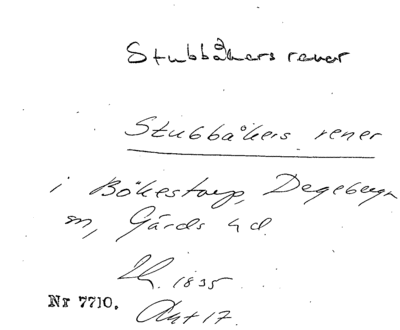 Stubbåkers renar
Stubbåkers rener
i Bökestorp, Degeberga
sn, Gärds hd
Lh. 1835
Nr 7710. Akt 17.